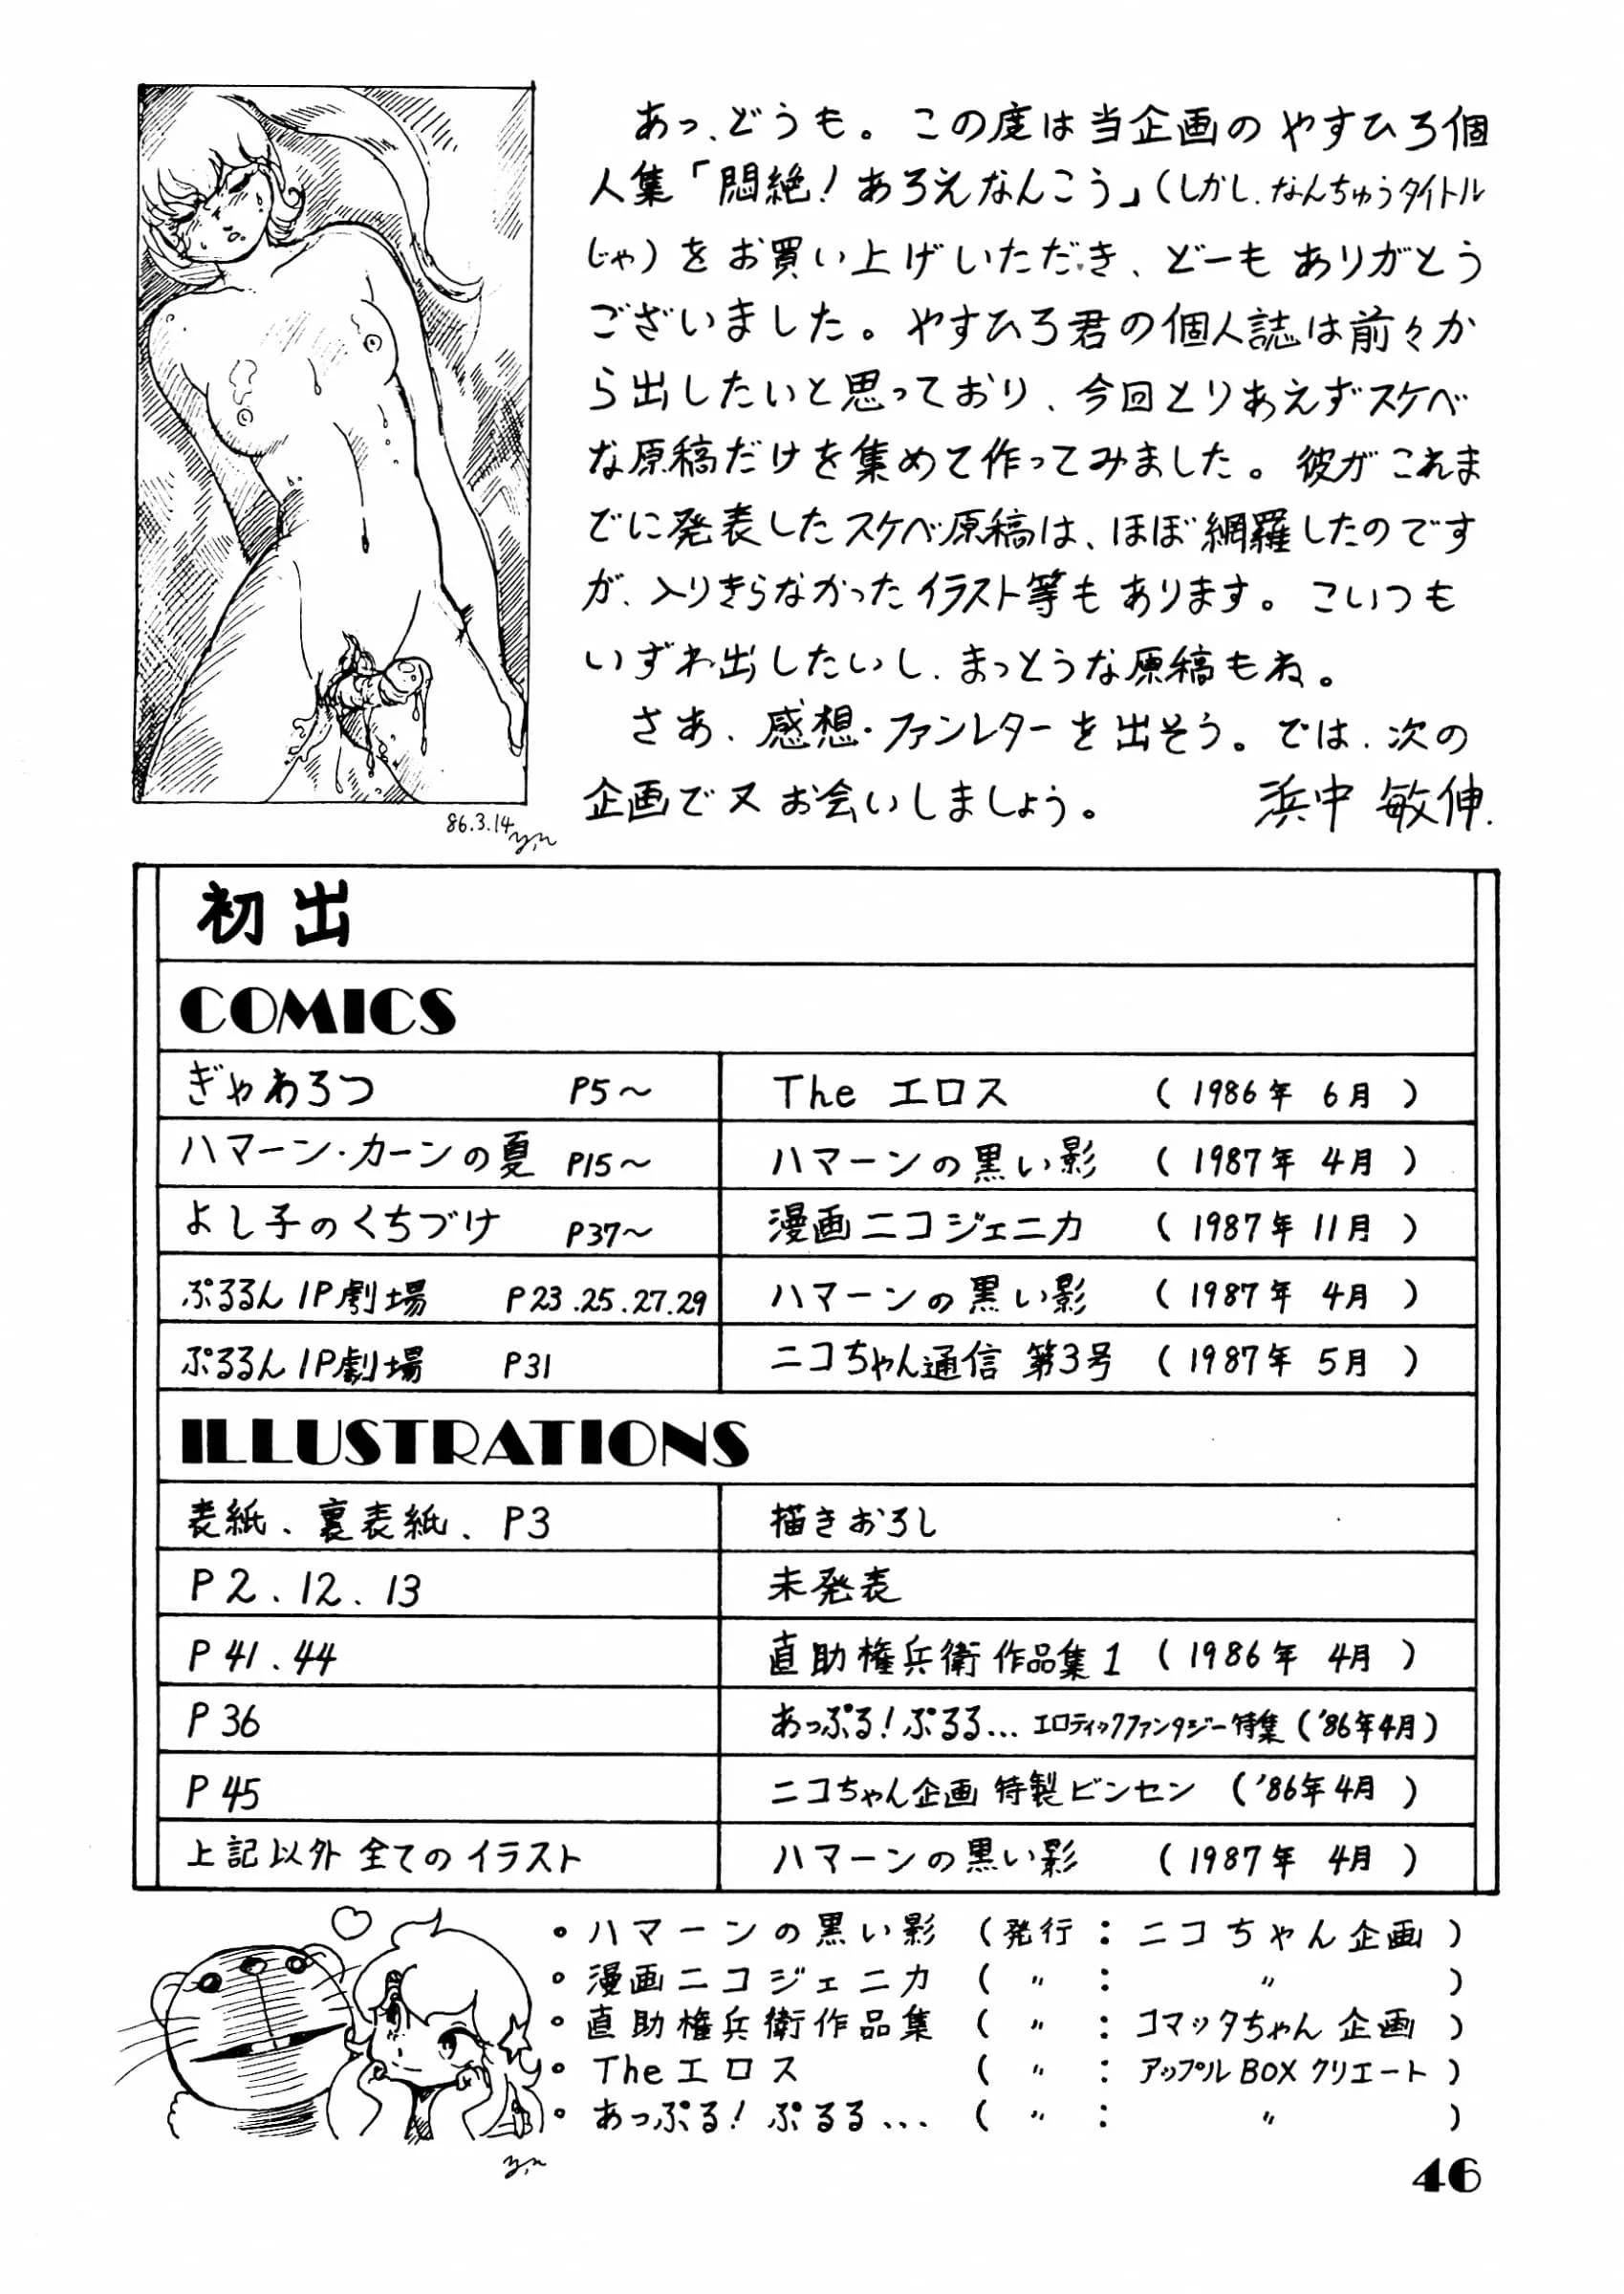 あっ、どうも。この度は当企画のやすひろ個
人集「悶絶!あろえなんこう」(しかし、なんちゅうタイトル
じゃ)をお買い上げいただき、どーもありがとう
ございました。やすひろ君の個人誌は前々か
ら出したいと思っており、今回とりあえずスケベ
な原稿だけを集めて作ってみました。彼がこれま
でに発表したスケベ原稿は、ほぼ網羅したのです
が、入りきらなかったイラスト等もあります。こいつも
いずれ出したいし、まっとうな原稿もね。
さあ、感想・ファンレターを出そう。では、次の
企画で又お会いしましょう。 浜中 敏伸.
86.3.14
初出
COMICS
ぎゃわろつ P5〜 The エロス (1986年 6月)
ハマーン・カーンの夏 P15〜 ハマーンの黒い影 (1987年 4月)
よし子のくちづけ P37〜 漫画ニコジェニカ (1987年 11月)
ぷるるん1P劇場 P23.25.27.29 ハマーンの黒い影 (1987年 4月)
ぷるるん1P劇場 P31 ニコちゃん通信 第3号 (1987年 5月)
ILLUSTRATIONS
表紙、裏表紙、P3 描きおろし
P2.12.13 未発表
P41.44 直助権兵衛作品集1 (1986年 4月)
P36 あっぷる!ぷるる… エロティックファンタジー特集 ('86年4月)
P45 ニコちゃん企画 特製ビンセン ('86年4月)
上記以外全てのイラスト ハマーンの黒い影 (1987年 4月)
・ハマーンの黒い影 (発行:ニコちゃん企画)
・漫画ニコジェニカ (〃:〃)
・直助権兵衛作品集 (〃:コマッタちゃん企画)
・Theエロス (〃:アップルBOXクリエート)
・あっぷる!ぷるる… (〃:〃)
46